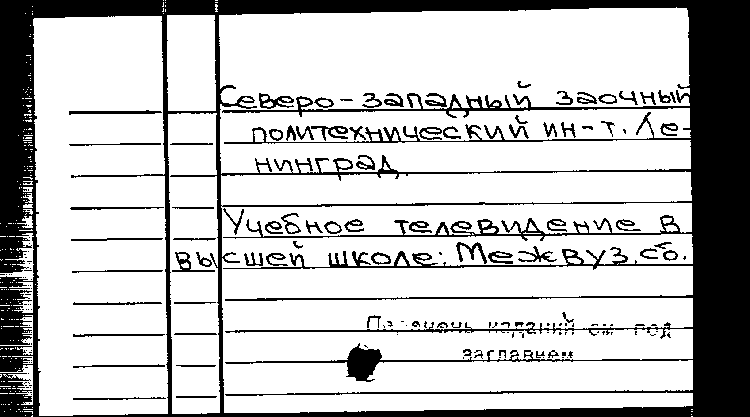 Северо-западный заочный
политехнический ин-т. Ле-
нинград.
Учебное телевидение в
высшей школе: Межвуз. сб.
Перечень изданий см. под
заглавием